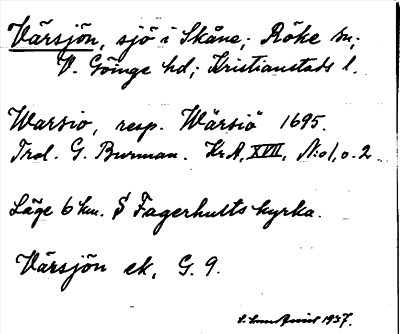 Värsjön, sjö i Skåne; Röke sn;
V. Göinge hd; Kristianstads l.
Warsio, resp. Wärsiö 1695.
Trol. G. Burman. Kr A, XVII, N:o 1, o. 2.
Läge 6 km. S Fagerhults kyrka.
Värsjön ek, G. 9.
1937.